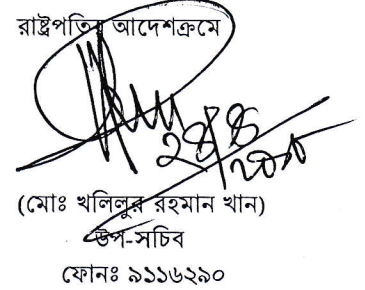 রাষ্ট্রপতির আদেশক্রমে
(মোঃ খলিলুর রহমান খান)
উপ-সচিব
ফোনঃ ৯১১৬২৯০